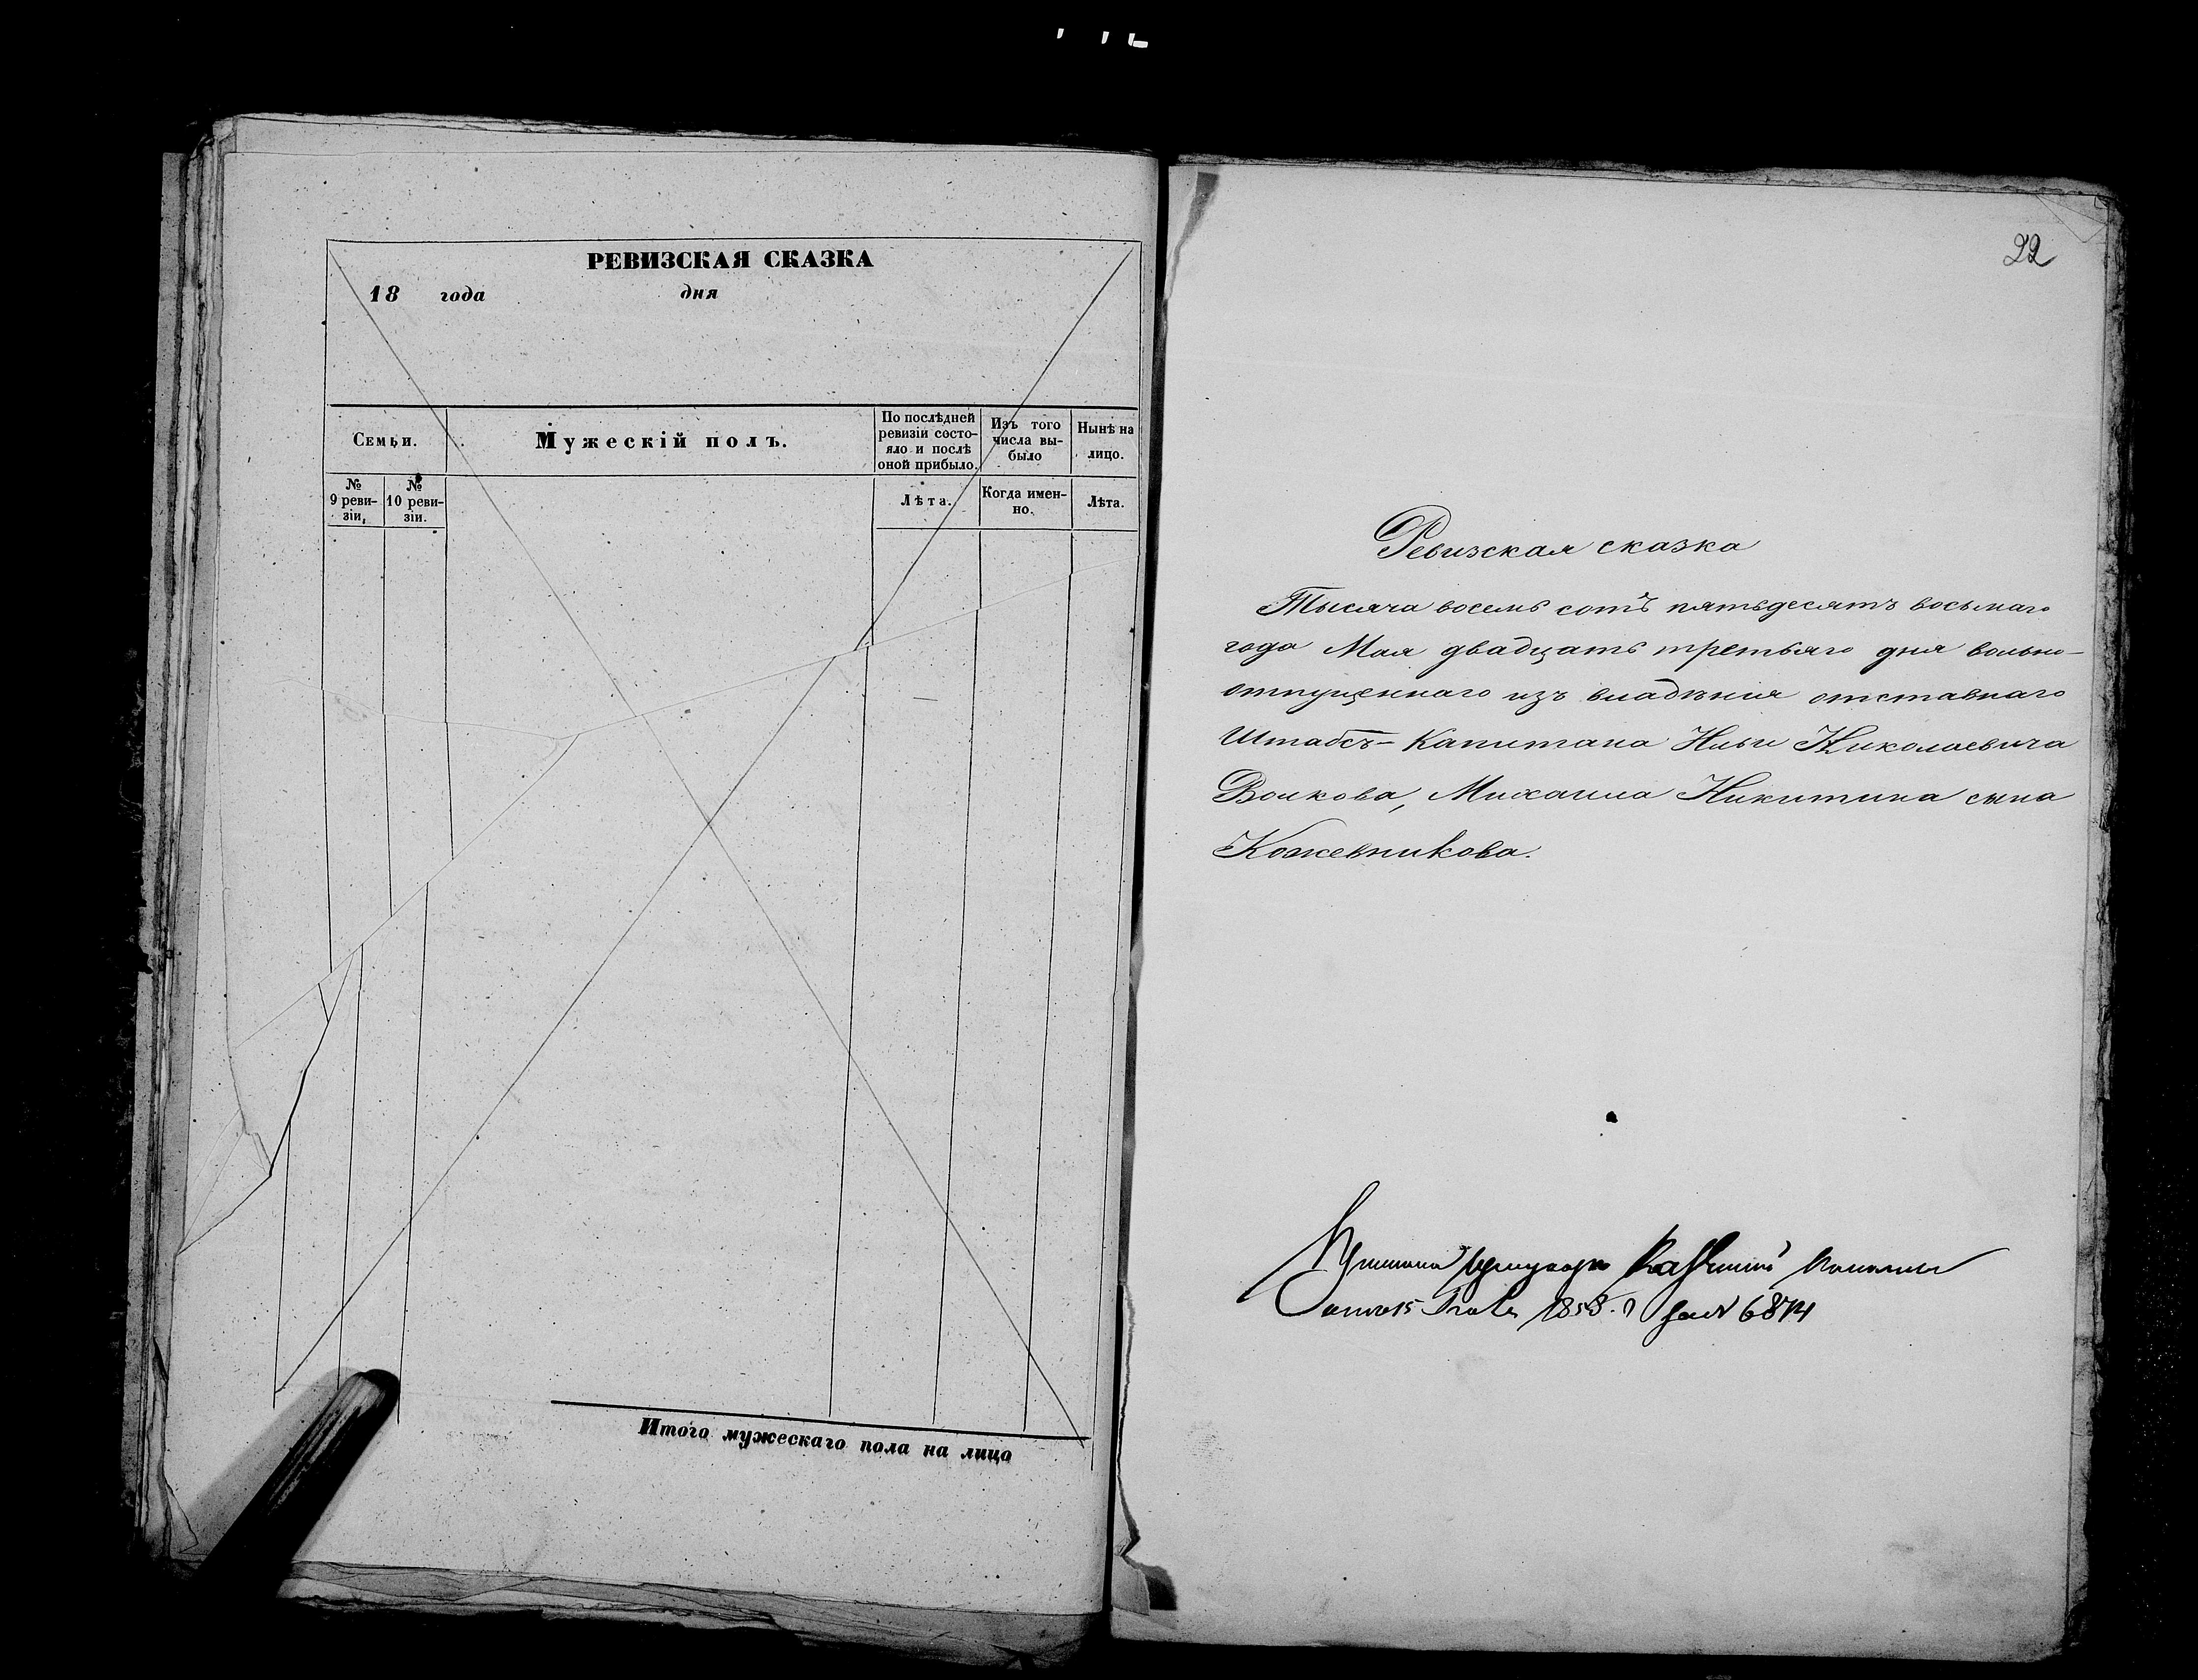 РЕВИЗСКАЯ СКАЗКА
18 года дня
Семьи.
Мужескій полъ.
По послѣдней
ревизіи состо-
яло и послѣ
оной прибыло.
Изъ того
числа вы-
было
Нынѣ на
лицо.
№
9 реви-
зіи,
№
10 реви-
зіи.
Лѣта.
Когда имен-
но.
Лѣта.
Итого мужескаго пола на лицо
22
Ревизская сказка
Тысяча восемь сотъ пятьдесятъ восьмаго
года Мая двадцать третьяго дня вольно-
отпущеннаго изъ владѣнія отставнаго
Штабсъ-Капитана Ильи Николаевича
Волкова, Михаила Никитина сына
Кожевникова.
1858. 6874